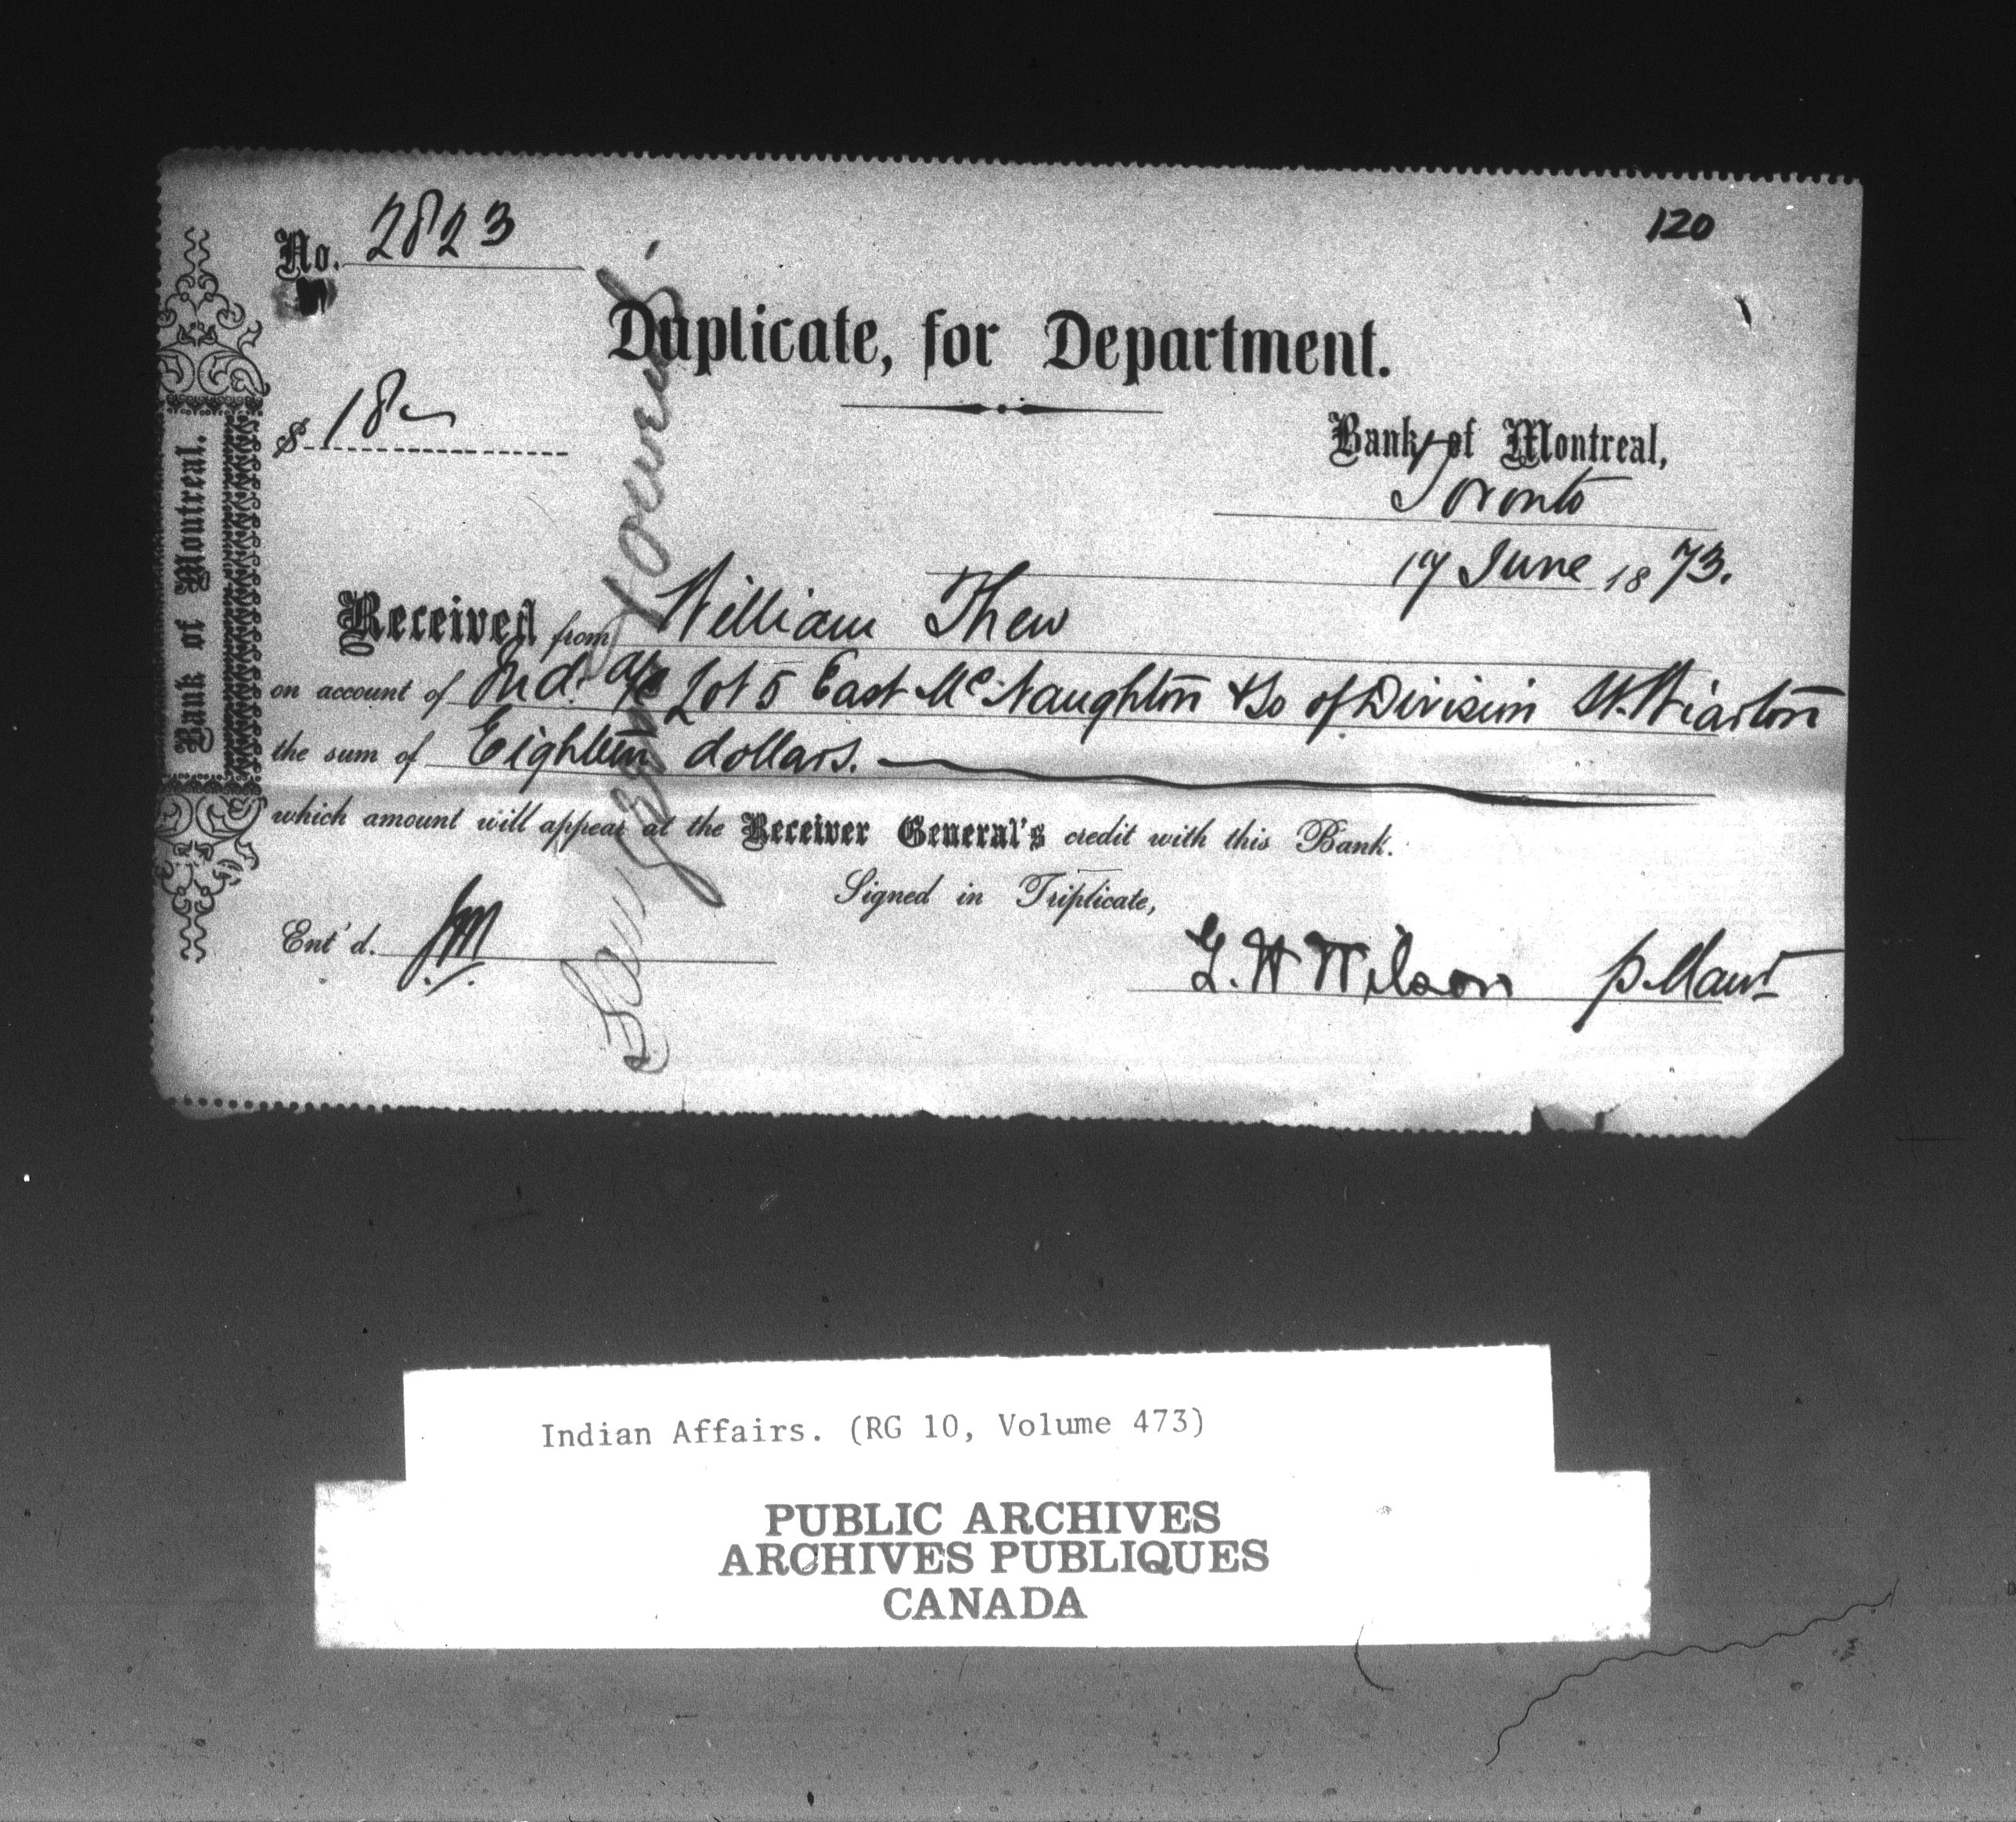 120
No. 2823
Duplicate, for Department.
$ 18
Bank of Montreal,
Toronto
17 June 1873.
Received from William Thew
on account of Ind. a/c Lot 5 East McNaughton & So of Division St. Wiarton
the sum of Eighteen dollars.
which amount will appear at the Receiver General's credit with this Bank.
Signed in Triplicate,
Ent'd. JM
G. W Wilson p. Manr
Bank of Montreal.
Saugeen Townnts.
Indian Affairs. (RG 10, Volume 473)
PUBLIC ARCHIVES
ARCHIVES PUBLIQUES
CANADA